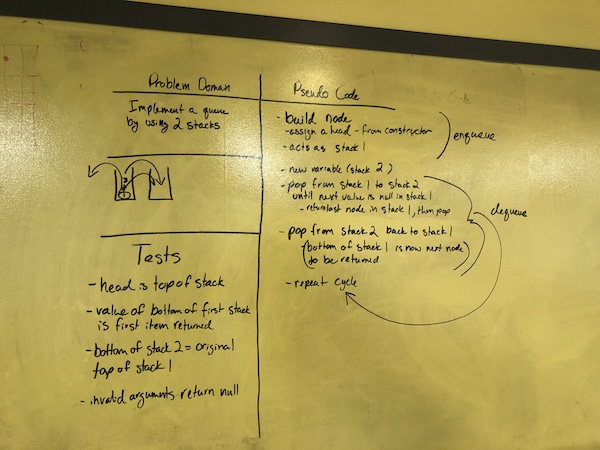 Problem Domain
Implement a queue
by using 2 stacks
Tests
- head is top of stack
- value of bottom of first stack
is first item returned
- bottom of stack 2 = original
top of stack 1
- invalid arguments return null
Pseudo Code
- build node
- assign a head - from constructor
- acts as stack 1
enqueue
- new variable (stack 2)
- pop from stack 1 to stack 2
until next value is null in stack 1
- return last node in stack 1, then pop
dequeue
- pop from stack 2 back to stack 1
(bottom of stack 1 is now next node
to be returned)
- repeat cycle